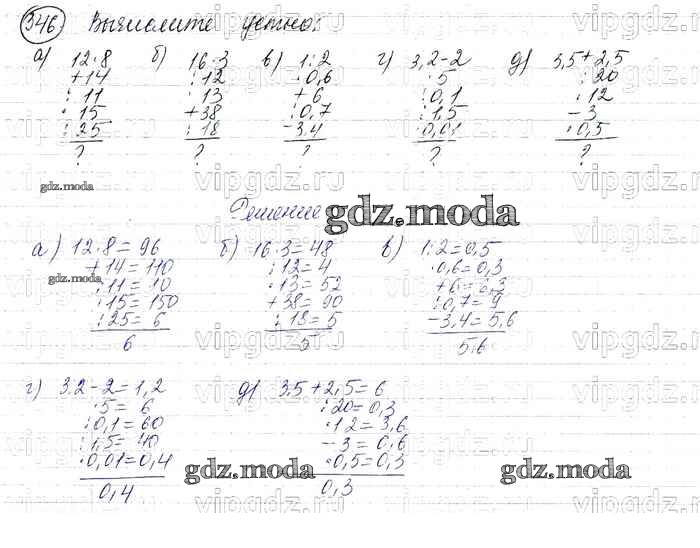 346 Вычислите устно:
а) 12·8 б) 16·3 в) 1:2 г) 3,2-2 д) 3,5+2,5
+14 :12 ·0,6 :5 :20
:11 ·13 +6 :0,1 ·12
·15 +38 :0,7 :1,5 -3
:25 :18 -3,4 ·0,01 ·0,5
? ? ? ? ?
gdz.moda
Решение gdz.moda
а) 12·8=96 б) 16·3=48 в) 1:2=0,5
+14=110 :12=4 ·0,6=0,3
:11=10 ·13=52 +6=6,3
·15=150 +38=90 :0,7=9
:25=6 :18=5 -3,4=5,6
6 5 5,6
gdz.moda
г) 3.2-2=1,2 д) 3.5+2,5=6
·5=6 :20=0,3
:0,1=60 ·12=3,6
:1,5=40 -3=0,6
·0,01=0,4 ·0,5=0,3
0,4 0,3
gdz.moda gdz.moda
vipgdz.ru